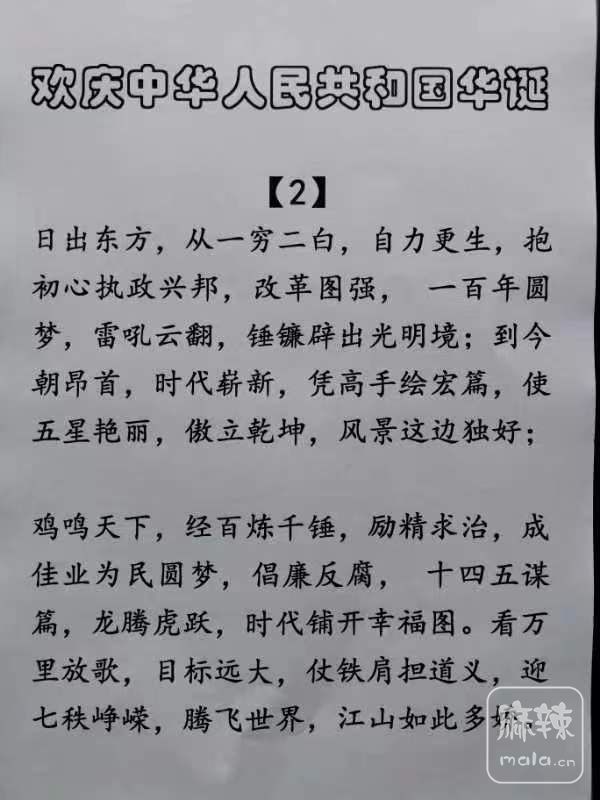 欢庆中华人民共和国华诞
【2】
日出东方，从一穷二白，自力更生，抱
初心执政兴邦，改革图强， 一百年圆
梦，雷吼云翻，锤镰辟出光明境；到今
朝昂首，时代崭新，凭高手绘宏篇，使
五星艳丽，傲立乾坤，风景这边独好；
鸡鸣天下，经百炼千锤，励精求治，成
佳业为民圆梦，倡廉反腐， 十四五谋
篇，龙腾虎跃，时代铺开幸福图。看万
里放歌，目标远大，仗铁肩担道义，迎
七秩峥嵘，腾飞世界，江山如此多娇。
麻辣
mala.cn